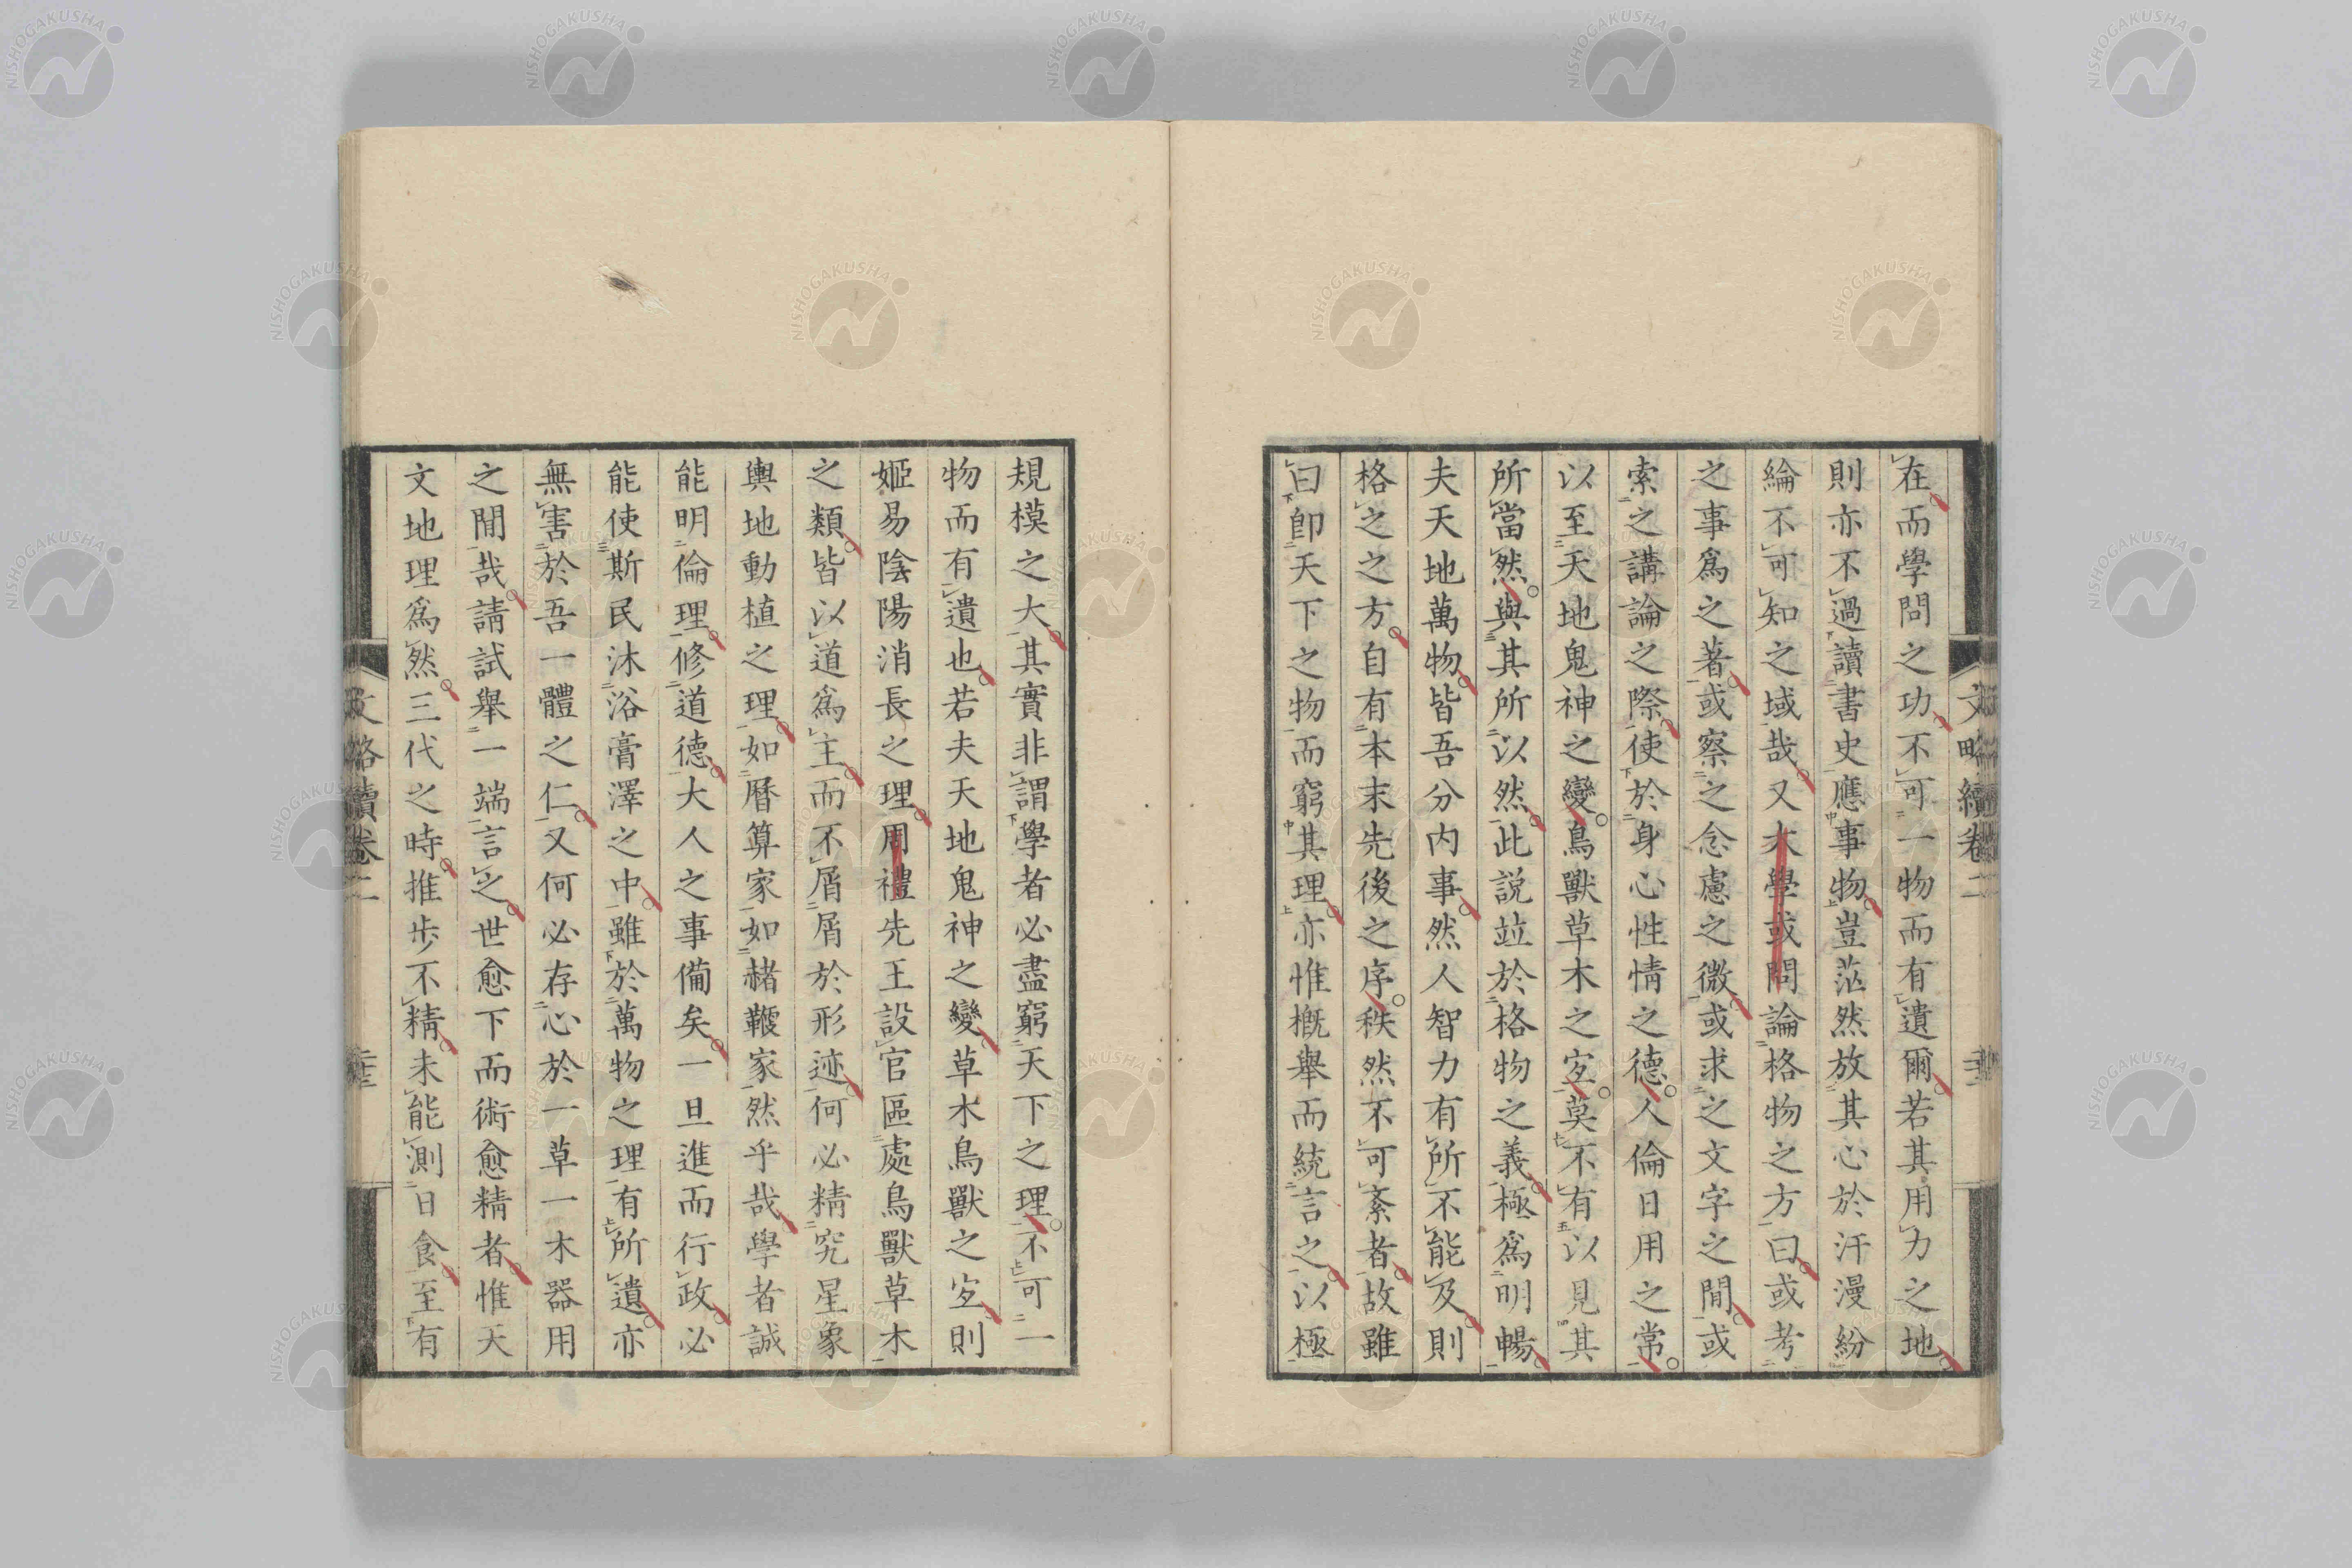 在而學問之功不可一物而有遺爾若其用力之地
則亦不過讀書史應事物豈茫然放其心於汗漫紛
綸不可知之域哉又大學或問論格物之方曰或考
之事爲之著或察之念慮之微或求之文字之間或
索之講論之際使於身心性情之德人倫日用之常
以至天地鬼神之變鳥獸草木之宐莫不有以見其
所當然與其所以然此説竝於格物之義極爲明暢
夫天地萬物皆吾分内事然人智力有所不能及則
格之之方自有本末先後之序秩然不可紊者故雖
曰卽天下之物而窮其理亦惟概舉而統言之以極
文略續卷二
規模之大其實非謂學者必盡窮天下之理不可一
物而有遺也若夫天地鬼神之變草木鳥獸之宐則
姬易陰陽消長之理周禮先王設官區處鳥獸草木
之類皆以道爲主而不屑屑於形迹何必精究星象
輿地動植之理如曆算家如赭鞭家然乎哉學者誠
能明倫理修道德大人之事備矣一旦進而行政必
能使斯民沐浴膏澤之中雖於萬物之理有所遺亦
無害於吾一體之仁又何必存心於一草一木器用
之間哉請試舉一端言之世愈下而術愈精者惟天
文地理爲然三代之時推步不精未能測日食至有
文略續卷二
NISHOGAKUSHA